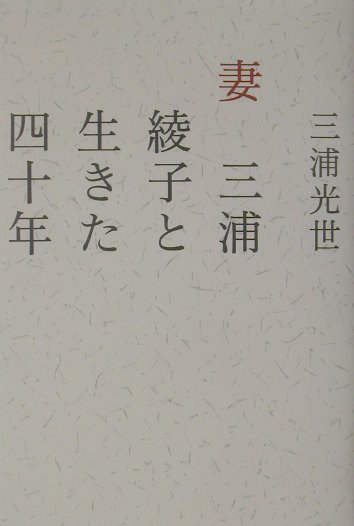 三浦光世
妻 三浦
綾子と
生きた
四十年